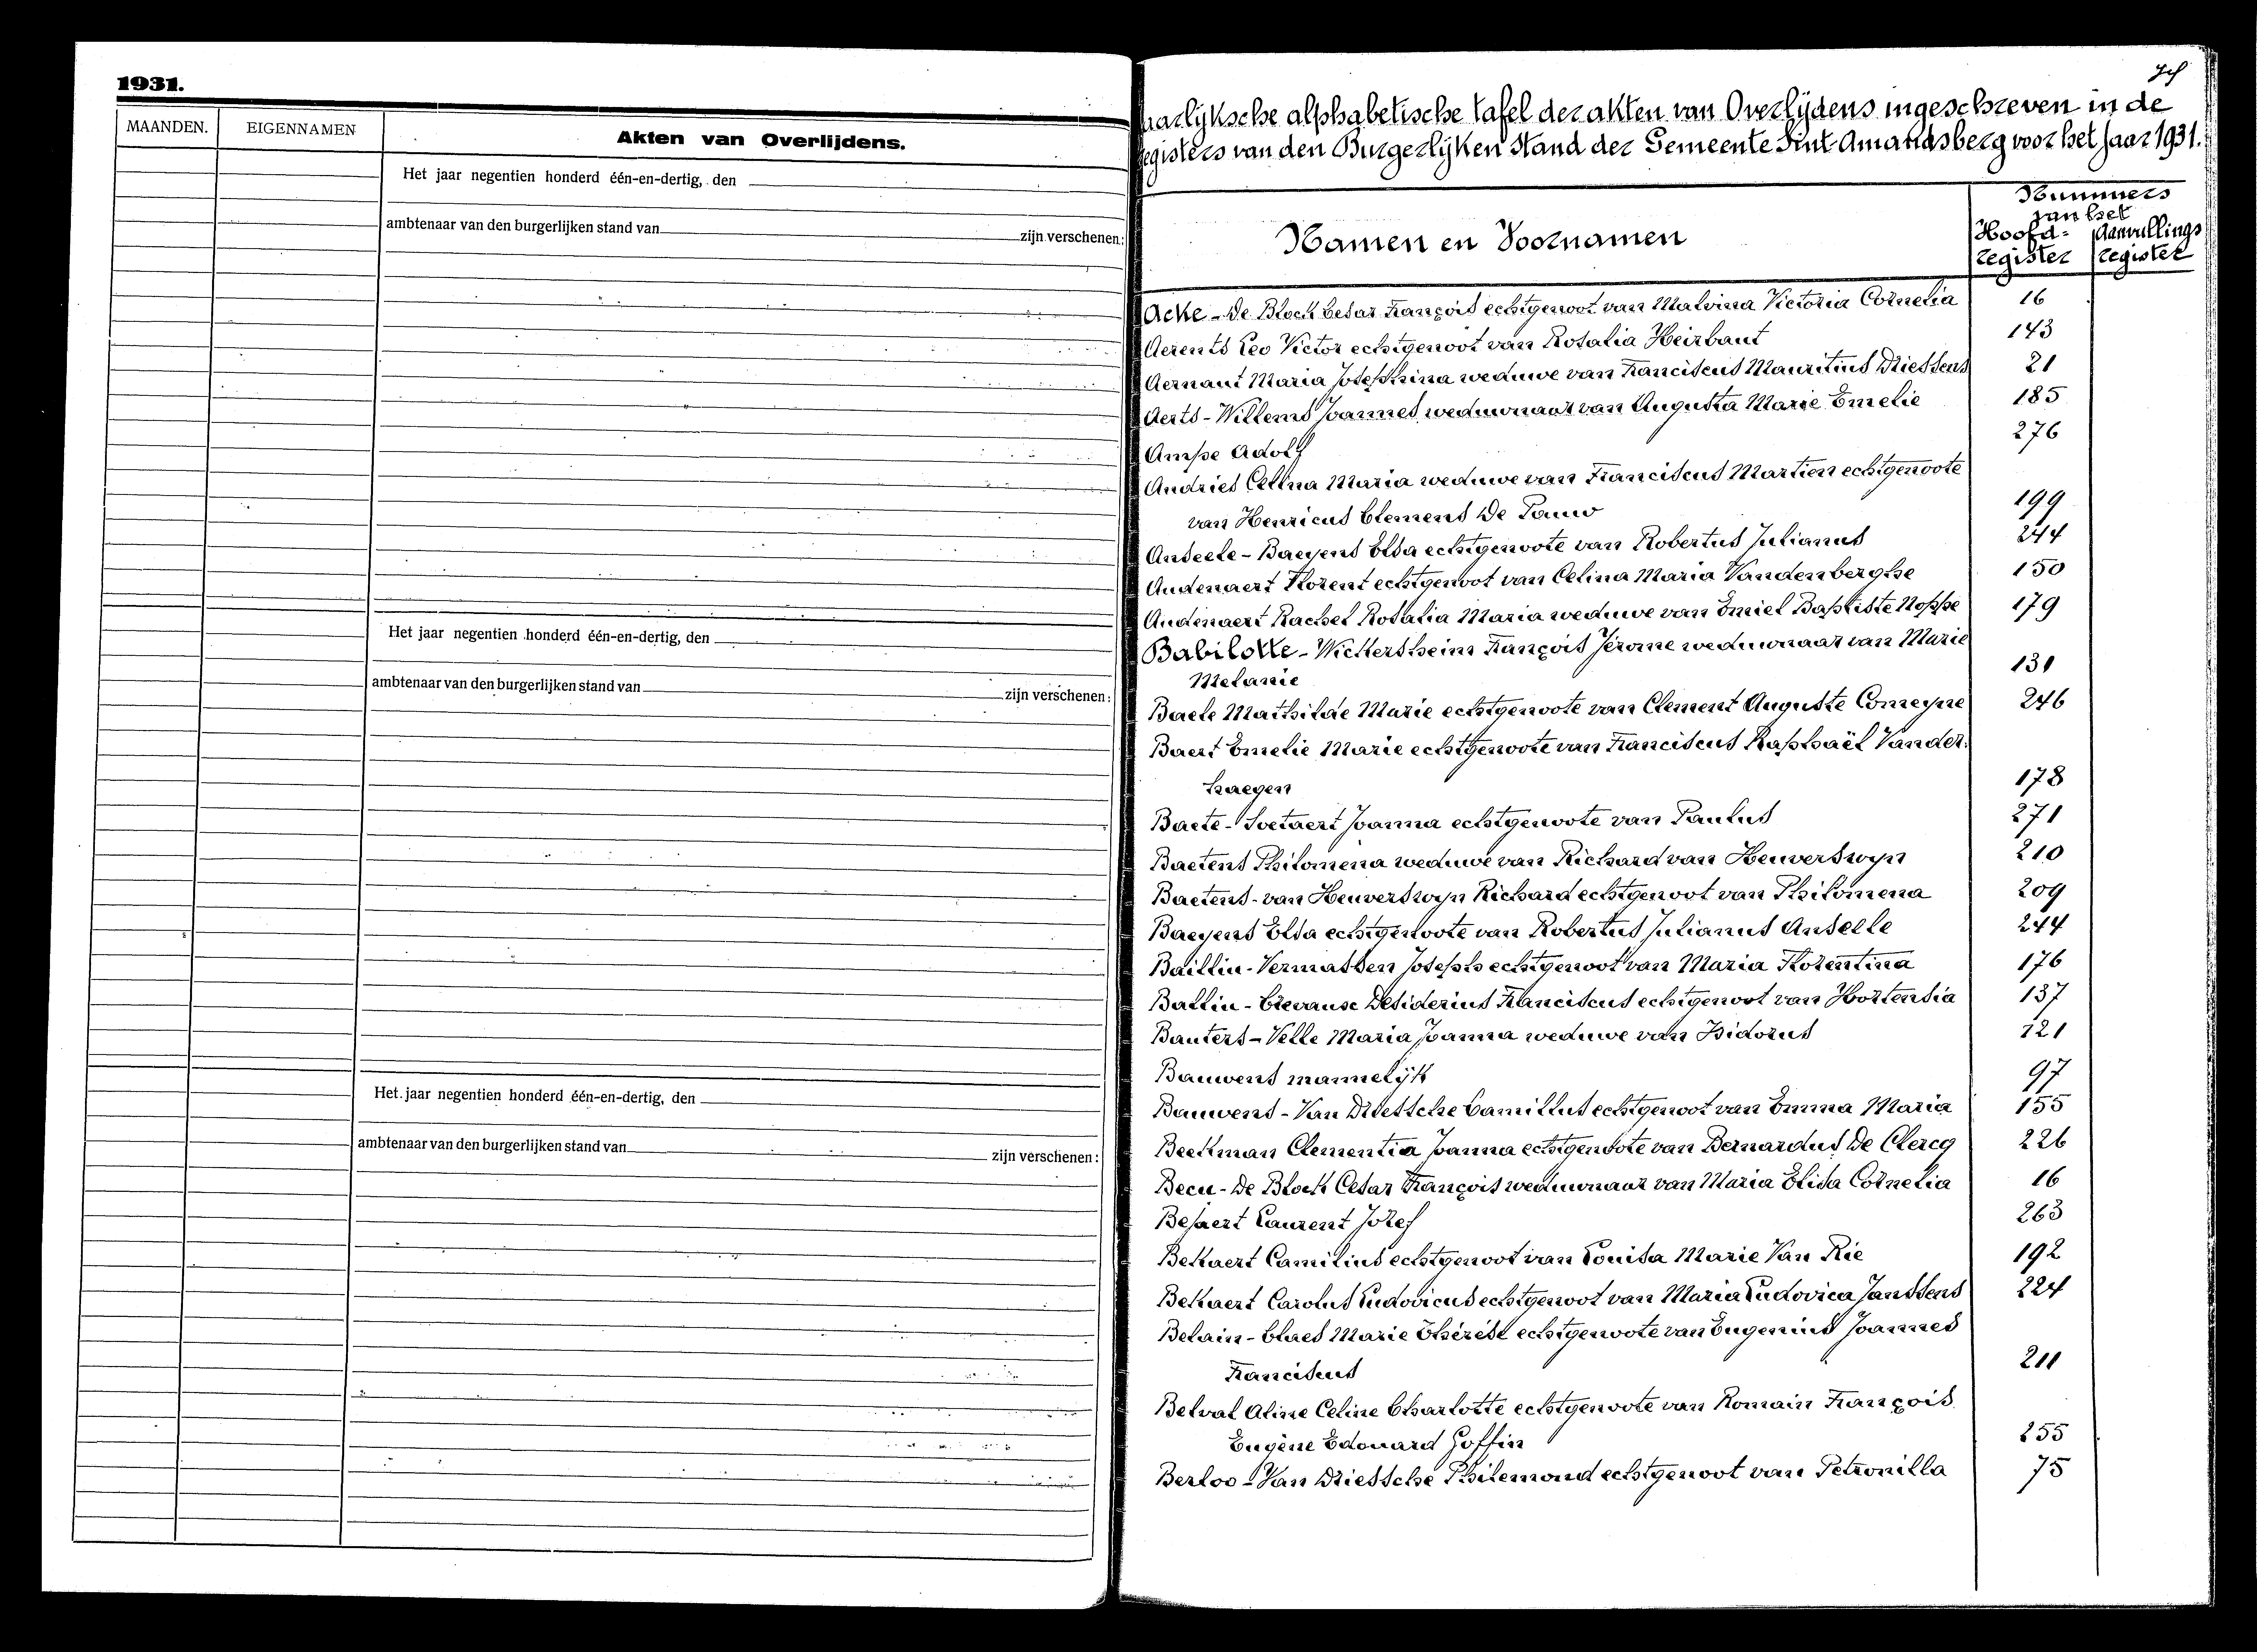 1931.
MAANDEN.
EIGENNAMEN
Akten van Overlijdens.
Het jaar negentien honderd één-en-dertig, den
ambtenaar van den burgerlijken stand van
zijn verschenen:
Het jaar negentien honderd één-en-dertig, den
ambtenaar van den burgerlijken stand van
zijn verschenen:
Het jaar negentien honderd één-en-dertig, den
ambtenaar van den burgerlijken stand van
zijn verschenen:
aarlyksche alphabetische tafel der akten van Overlijdens ingeschreven in de
egisters van den Burgerlijken Stand der Gemeente Sint-Amandsberg voor het jaar 1931.
Nummers
van het
Namen en Voornamen
Hoofd- Aanvullings
register register
Acke - De Block Cesar François echtgenoot van Malvina Victoria Cornelia 16
Aerents Leo Victor echtgenoot van Rosalia Heirbaut 143
Aernaut Maria Josephina weduwe van Franciscus Mauritius Driessens 21
Aerts - Willems Joannes weduwnaar van Augusta Marie Emelie 185
Ampe Adolf 276
Andries Celina Maria weduwe van Franciscus Martien echtgenoote
van Henricus Clemens De Pauw 199
Anseele - Baeyens Elsa echtgenoote van Robertus Julianus 244
Audenaert Florent echtgenoot van Celina Maria Vandenberghe 150
Audenaert Rachel Rosalia Maria weduwe van Emiel Baptiste Noppe 179
Babilotte - Wickersheim François Jérome weduwnaar van Marie
Melanie 131
Baele Mathilde Marie echtgenoote van Clement Auguste Comeyne 246
Baert Emelie Marie echtgenoote van Franciscus Raphaël Vander-
haegen 178
Baete - Soetaert Joanna echtgenoote van Paulus 271
Baetens Philomena weduwe van Richard van Heuverswyn 210
Baetens - van Heuverswyn Richard echtgenoot van Philomena 209
Baeyens Elsa echtgenoote van Robertus Julianus Anseele 244
Baillin - Vermassen Joseph echtgenoot van Maria Florentina 176
Ballin - Desiderius Franciscus echtgenoot van Hortensia 137
Bauters - Velle Maria Joanna weduwe van Isidorus 121
Bauwens mannelijk 97
Bauwens - Van Driessche Camillus echtgenoot van Emma Maria 155
Beekman Clementia Joanna echtgenoote van Bernardus De Clercq 226
Becu - De Block Cesar François weduwnaar van Maria Elisa Cornelia 16
Laurent Jozef 263
Bekaert Camilius echtgenoot van Louisa Marie Van Rie 192
Bekaert Carolus Ludovicus echtgenoot van Maria Ludovica Janssens 224
Belain - Claes Marie Thérèse echtgenoote van Eugenius Joannes
Franciscus 211
Belval Aline Celine Charlotte echtgenoote van Romain François
Eugène Edouard Goffin 255
Berloo - Van Driessche Philemond echtgenoot van Petronilla 75